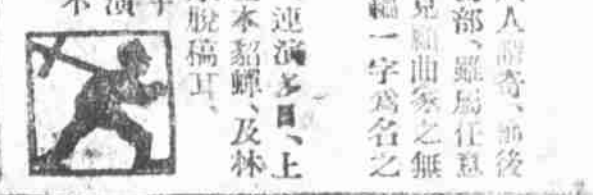 人■奇、■後
部、雖屬任意
見顧曲家之無
編一字爲名之
連演多日、上
本貂蟬、及林
脫稿耳、
演